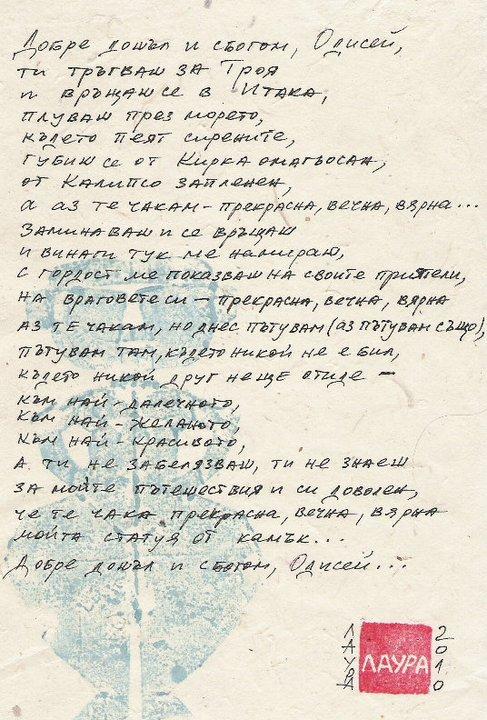 Добре дошъл и сбогом, Одисей,
ти тръгваш за Троя
и връщаш се в Итака,
плуваш през морето,
където пеят сирените,
губиш се от Кирка омагьосан,
от Калипсо запленен,
а аз те чакам - прекрасна, вечна, вярна...
Заминаваш и се връщаш
и винаги тук ме намираш,
с гордост ме показваш на своите приятели,
на враговете си - прекрасна, вечна, вярна
аз те чакам, но днес пътувам (аз пътувам също),
пътувам там, където никой не е бил,
където никой друг не ще отиде -
към най-далечното,
към най-желаното,
към най-красивото,
а ти не забелязваш, ти не знаеш
за мойте пътешествия и си доволен,
че те чака прекрасна, вечна, вярна
мойта статуя от камък...
Добре дошъл и сбогом, Одисей...
ЛАУРА
ЛАУРА
2010